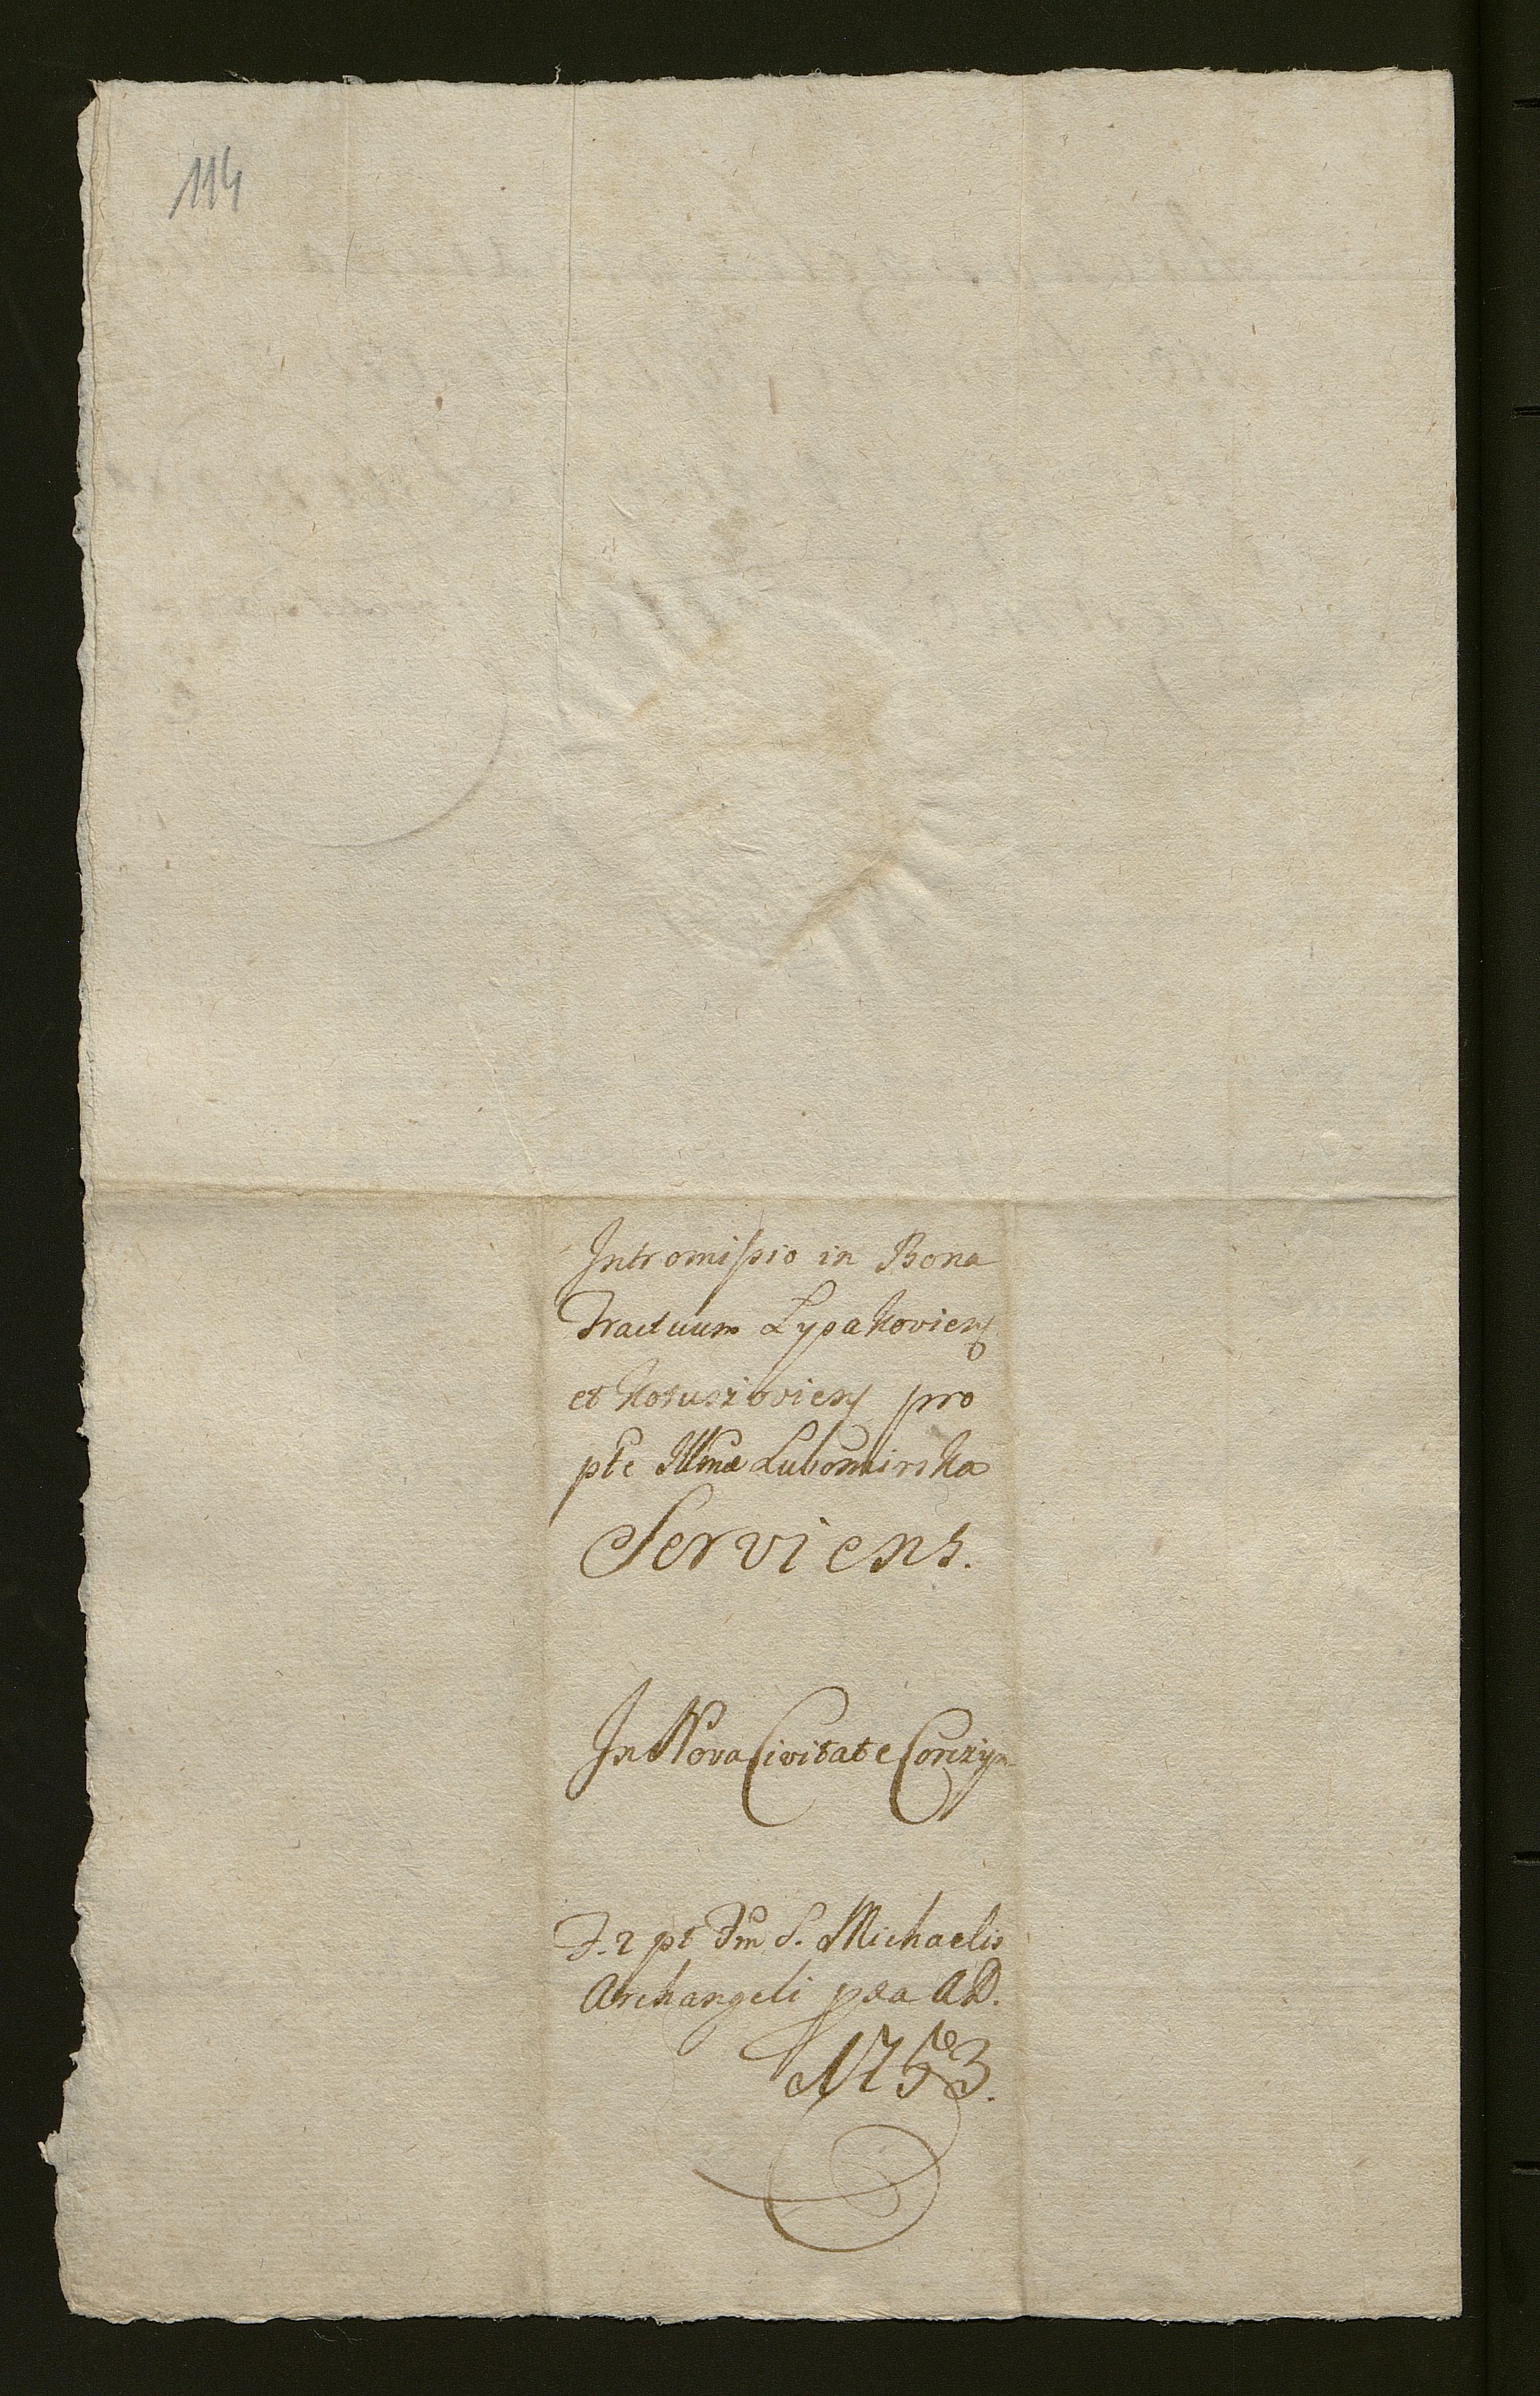 114
Intromissio in Bona
Tractuum Lypakoviens
et Kotuszoviens pro
pte Illmae Lubomirska
Serviens.
In Nova Civitate Corczyn
F. 2 pt Fm S. Michaelis
Archangeli pxa AD.
1753.